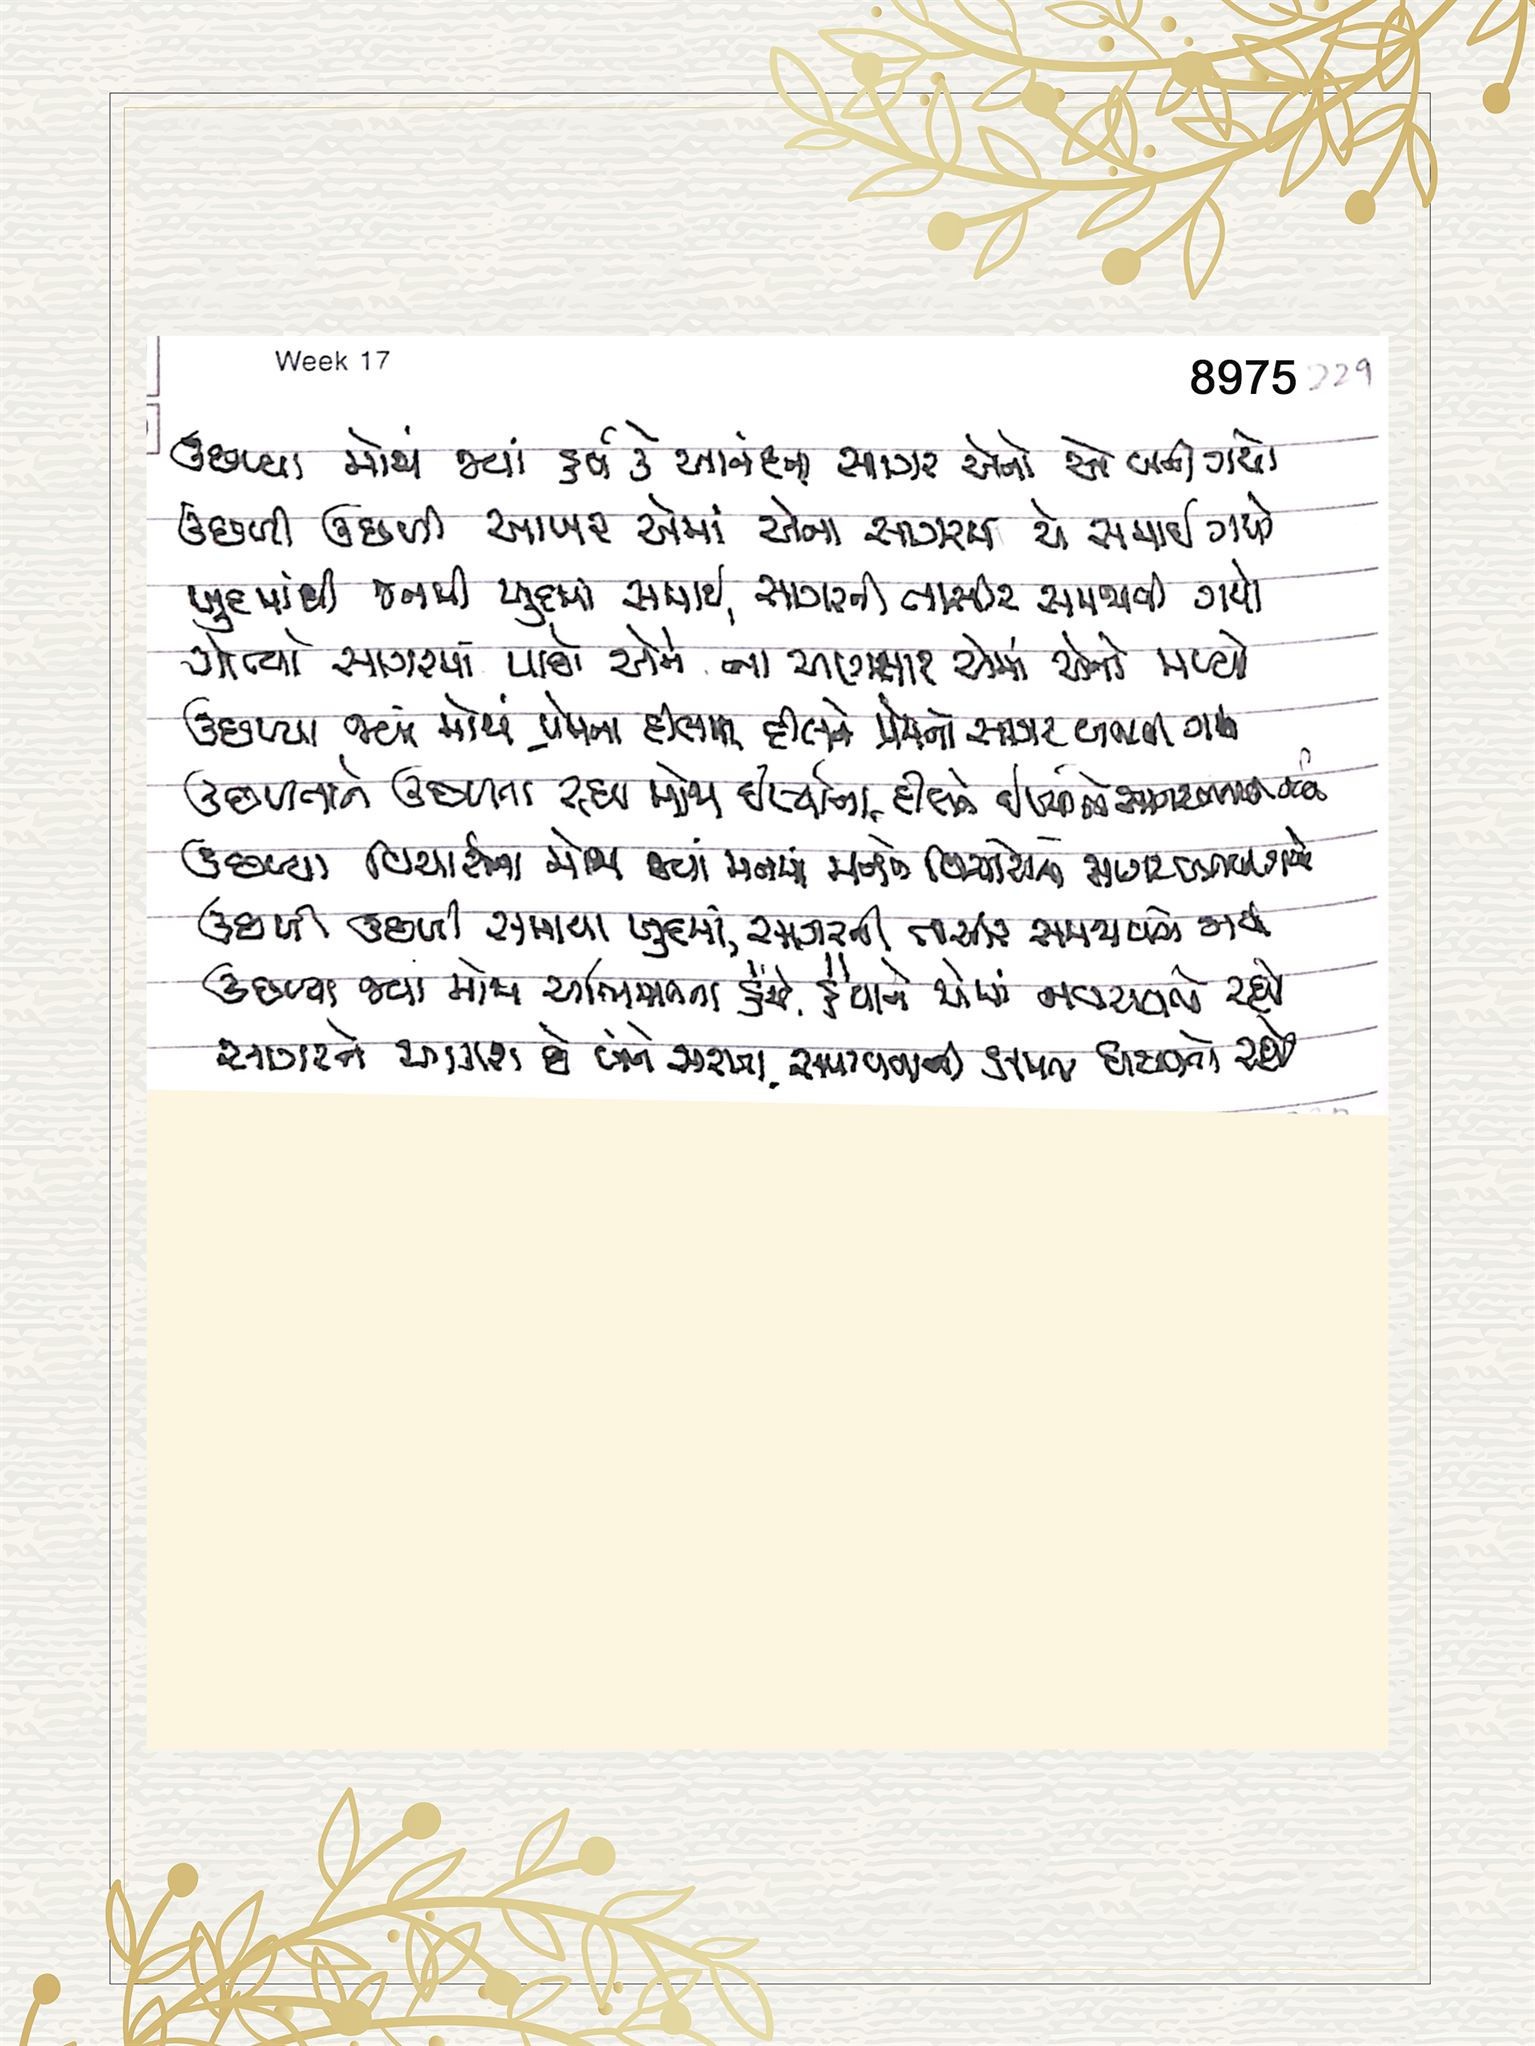 Week 17
8975 229
ઉછળ્યા મોજાં જ્યાં હર્ષ ને આનંદના સાગર એનો એ બની ગયો
ઉછળી ઉછળી આખર એમાં એના સાગરમાં એ સમાઈ ગયો
ખુદમાંથી જનમી ખુદમાં સમાઈ, સાગરની તાસીર સમજાવી ગયો
ગોત્યો સાગરમાં પાછો એને ના અણસાર એમાં એનો મળ્યો
ઉછળ્યા જ્યાં મોજાં પ્રેમના દીલમાં દીલને પ્રેમનો સાગર બનાવી ગયા
ઉછળતાને ઉછળતા રહ્યા મોજા ઈર્ષ્યાના, દીલને ઈર્ષ્યાનો સાગર બનાવી ગયા
ઉછળ્યા વિચારોના મોજા જ્યાં મનમાં મનને વિચારોનો સાગર બનાવી ગયો
ઉછળી ઉછળી સમાયા ખુદમાં, સાગરની તાસીર સમજાવી ગયો
ઉછળ્યા જ્યાં મોજા અભિમાનના હૈયે, હૈયાને એમાં નચાવતો રહ્યો
સાગરને આકાશ છે બંને સરખા, સમાવવાની ક્ષમતા ધરાવતો રહ્યો